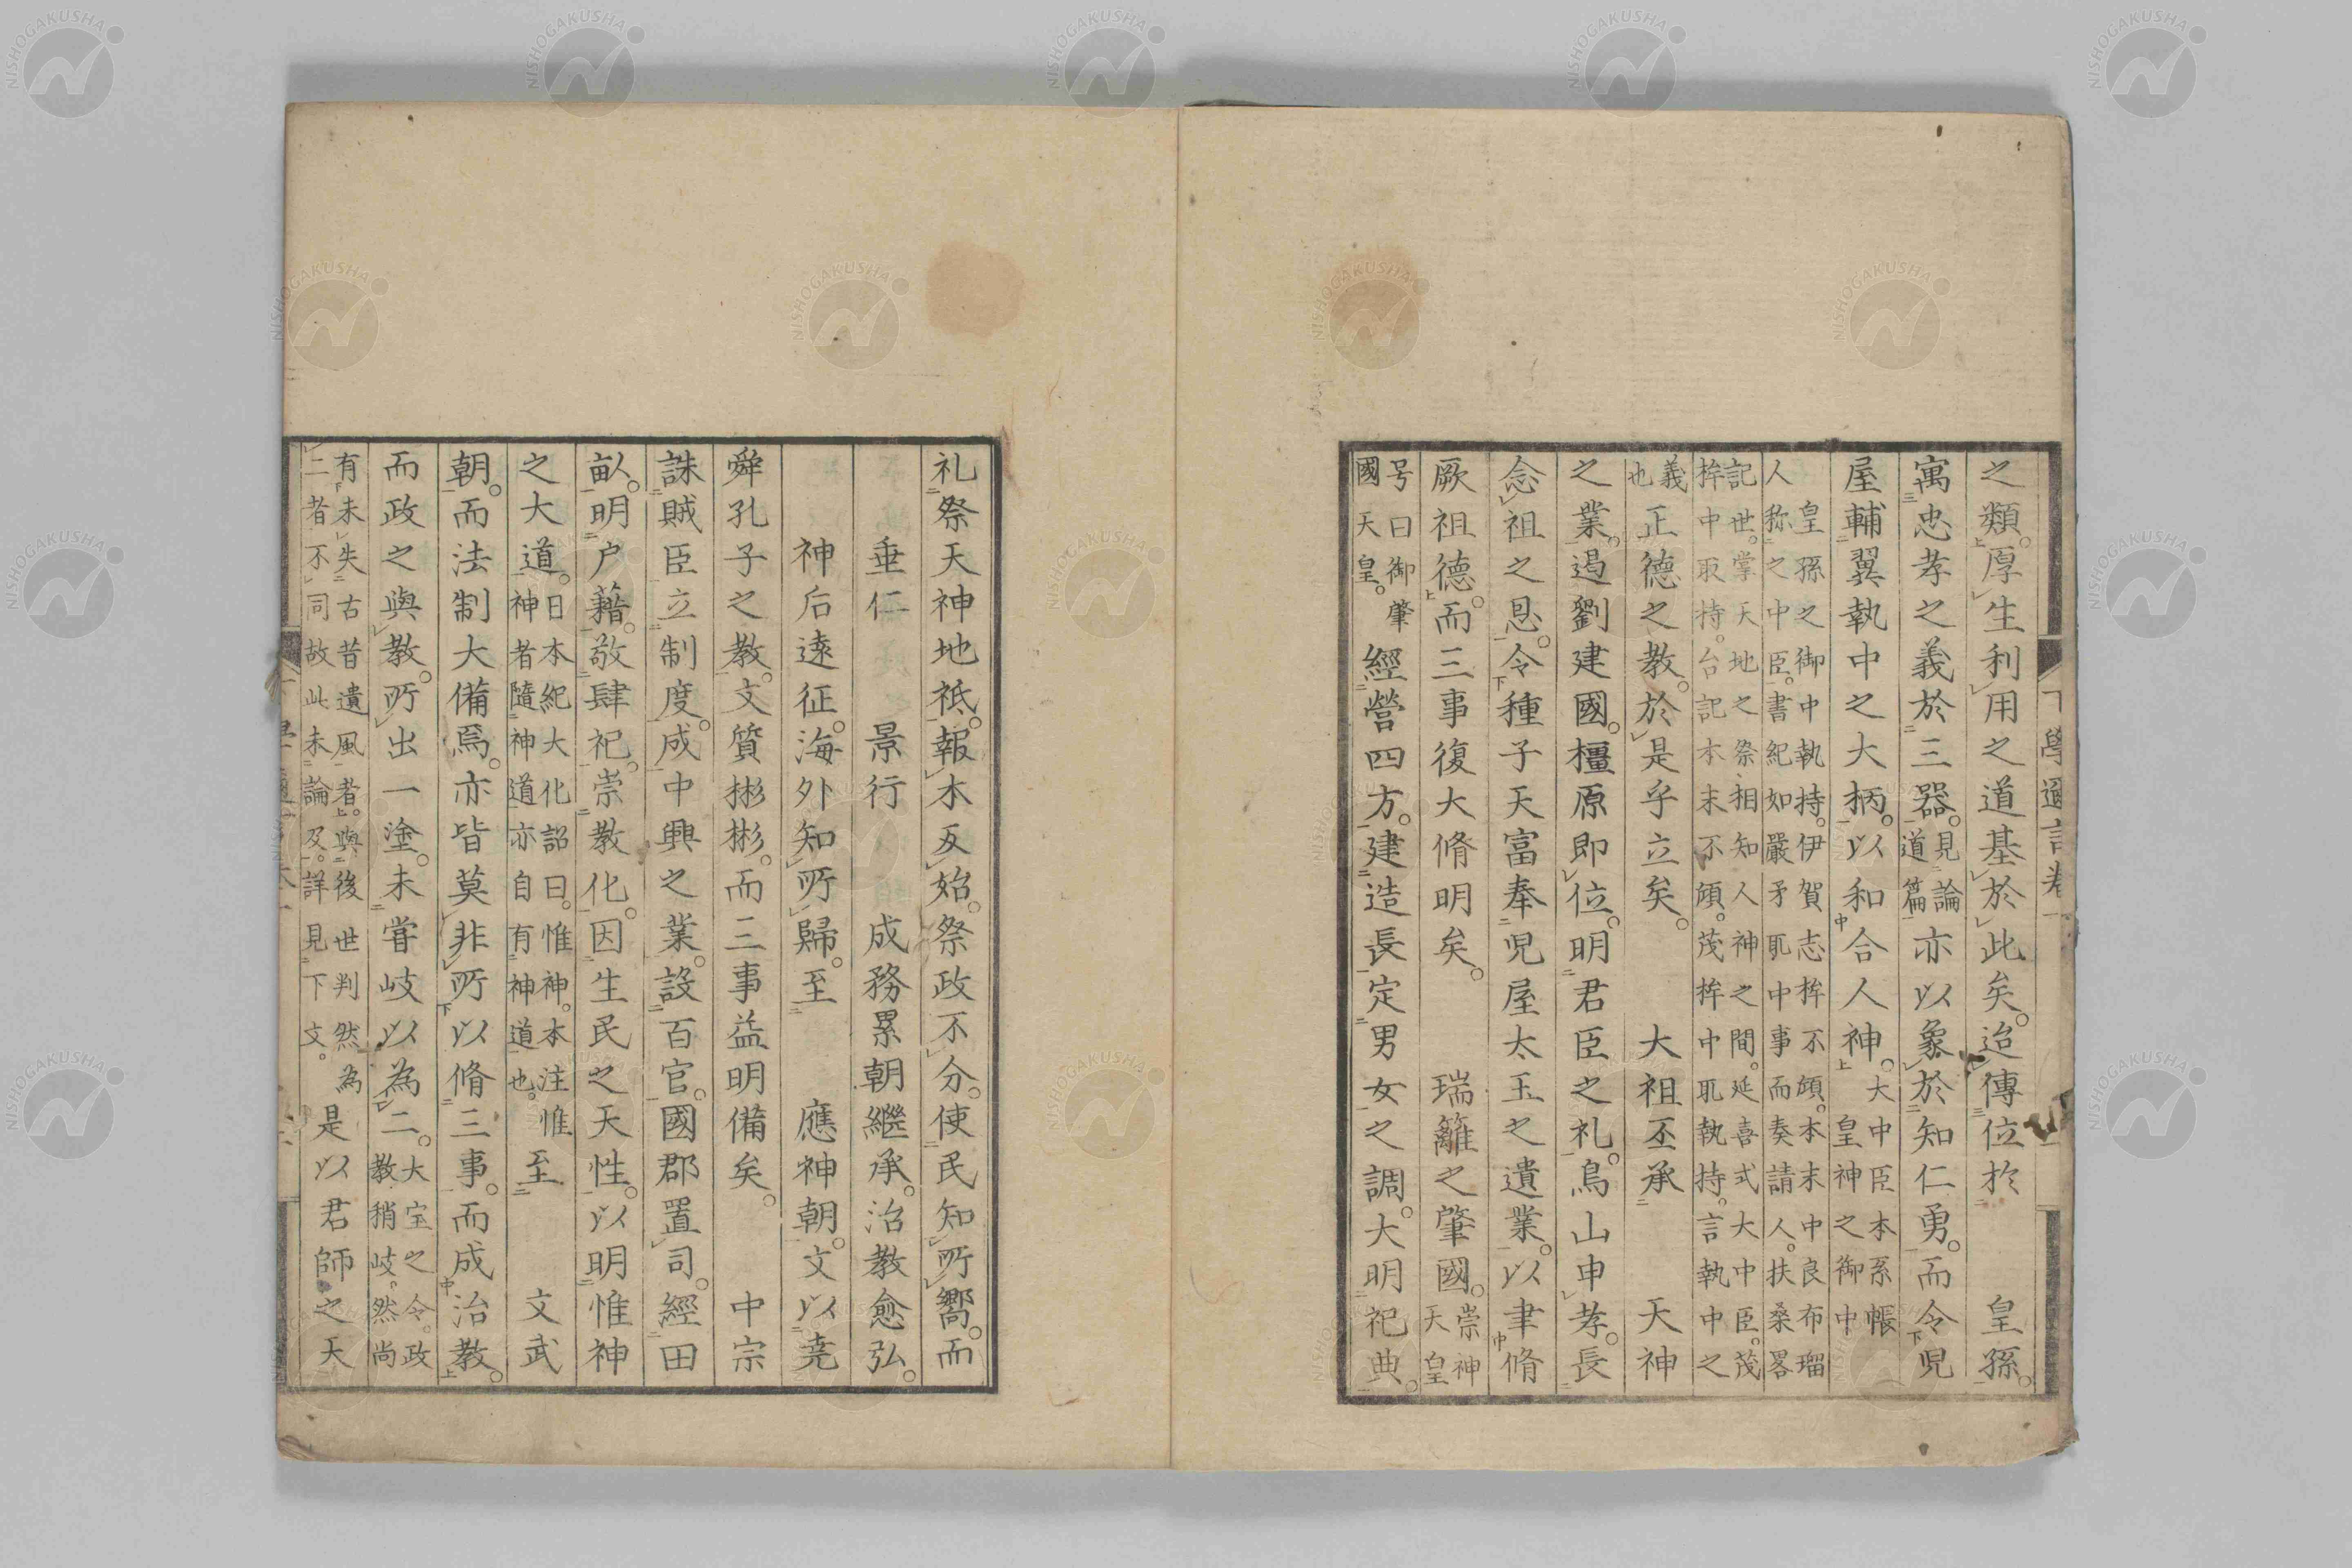 下學邇言卷一
之類。厚生利用之道基於此矣。迨傳位於　皇孫。
寓忠孝之義於三器。見論道篇亦以象於知仁勇。而令児
屋輔翼執中之大柄。以和合人神。大中臣本系帳皇神之御中
皇孫之御中執持。伊賀志桙不傾。本末中良布瑠
人称之中臣。書紀如嚴矛取中事而奏請人。扶桑畧
記世掌天地之祭、相知人神之間。延喜式大中臣。茂
桙中取持。台記本末不傾。茂桙中取執持。言執中之
義也正德之教。於是乎立矣。　大祖丕承　天神
之業。遏劉建國。橿原即位。明君臣之礼。鳥山申孝。長
念祖之恩。令種子天富奉児屋太玉之遺業。以聿脩
厥祖德。而三事復大脩明矣。　瑞籬之肇國。崇神天皇
号曰御肇國天皇。經營四方。建造長定男女之調。大明祀典。
礼祭天神地祇。報本反始。祭政不分。使民知所嚮。而
垂仁　景行　成務累朝繼承。治教愈弘。
神后遠征。海外知所歸。至　應神朝。文以堯
舜孔子之教。文質彬彬。而三事益明備矣。　中宗
誅賊臣立制度。成中興之業。設百官。國郡置司。經田
畝。明戸藉。敬肆祀。崇教化。因生民之天性。以明惟神
之大道。日本紀大化詔曰。惟神。本注惟神者隨神道亦自有神道也。至　文武
朝。而法制大備焉。亦皆莫非所以脩三事。而成治教。
而政之與教。所出一塗。未甞岐以為二。大宝之令。政教稍岐。然尚
有未失古昔遺風者。與後世判然為二者不同故此未論及。詳見下文。是以君師之天